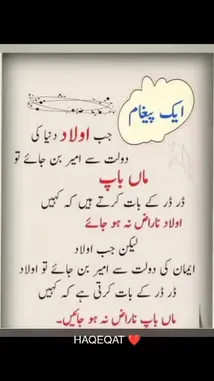 ایک پیغام
جب اولاد دنیا کی
دولت سے امیر بن جائے تو
ماں باپ
ڈر ڈر کے بات کرتے ہیں کہ کہیں
اولاد ناراض نہ ہو جائے
لیکن جب اولاد
ایمان کی دولت سے امیر بن جائے تو اولاد
ڈر ڈر کے بات کرتی ہے کہ کہیں
ماں باپ ناراض نہ ہو جائیں۔
HAQEQAT ❤️